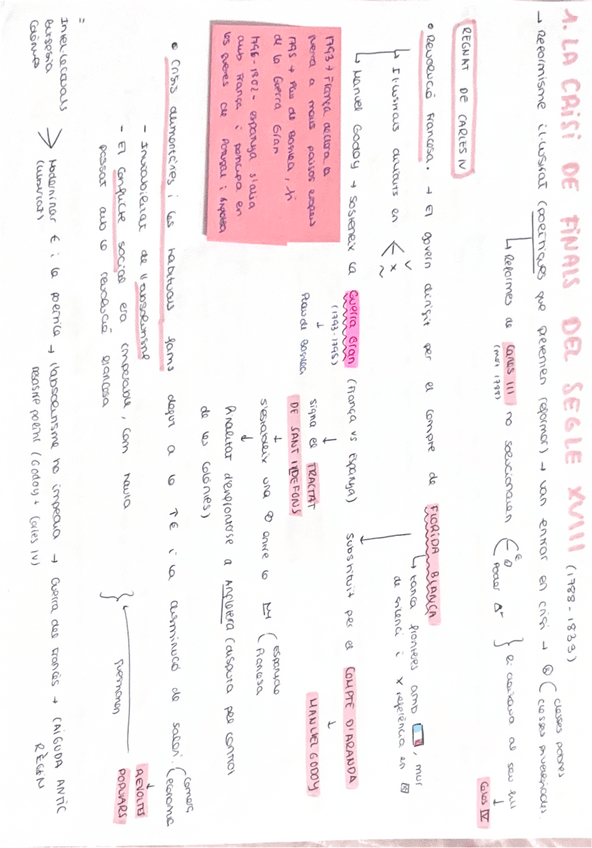 1. LA CRISI DE FINALS DEL SEGLE XVIII (1788-1833)
→ Reformisme il·lustrat (polítiques que pretenien reformar) → van entrar en crisi →
classes pobres
classes privilegiades
↳ Reformes de Carles III no solucionaven
(mort 1788)
poder
al seu fill
Carles IV
REGNAT DE CARLES IV
• Revolució Francesa. → El govern dirigit per el compte de FLORIDA BLANCA
↳ tanca fronteres amb, mur
de silenci i x referència en
↳ Il·lustrats dividits en
substituït per el COMPTE D'ARANDA
MANUEL GODOY
↳ Manuel Godoy → sosteneix la Guerra Gran (França vs Espanya)
(1793-1795)
Pau de Basilea
signa el TRACTAT
DE SANT ILDEFONS
s'estableix una entre la
espanyola
francesa
Finalitat d'enfrontarse a Anglaterra (disputa pel control
de les colònies)
1793 → França declara la
guerra a molts països
1795 → Pau de Basilea, fi
de la Guerra Gran
1796-1802 - espanya s'alia
amb França i participa en
les guerres de Portugal i
• Crisis alimentàries i les habituals fams degut a la i la disminució de salari.
comerç
economia
- Inestabilitat de l'absolutisme
- El conflicte social era imparable, com havia
passat amb la revolució francesa
augmenten
REVOLTES
POPULARS
=
Intel·lectuals
burgesia
Modernitzar € i la política → l'absolutisme ho impedia → Guerra del francès → CAIGUDA ANTIC
RÈGIM
(il·lustrats)
desastre polític (Godoy + Carles IV)